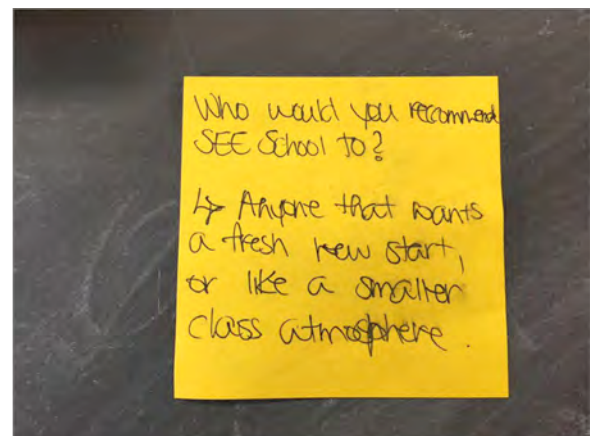 Who would you reccommend
SEE School to?
↳ Anyone that wants
a fresh new start,
or like a smaller
class atmosphere.